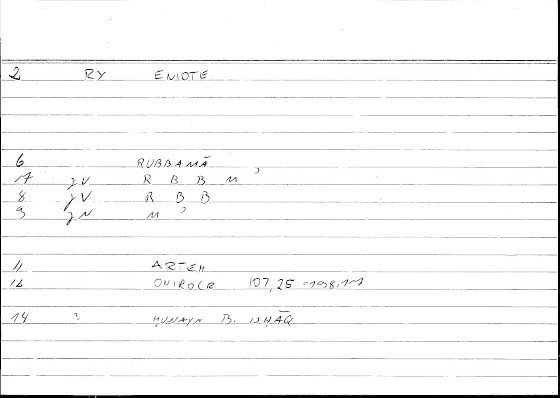 2 RY ENIOTE
6 RUBBAMĀ
7 yV R B B M ʾ
8 yV R B B
9 yN M ʾ
11 ARTEM
12 ONIROCR 107,25 -108,11
14 ? ḤUNAYN B. ISḤĀQ